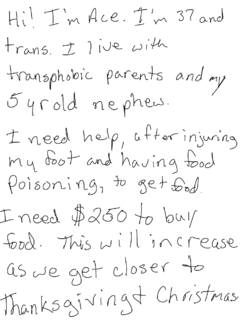 Hi! I'm Ace. I'm 37 and
trans. I live with
transphobic parents and my
5 yr old nephew.
I need help, after injuring
my foot and having food
poisoning, to get food.
I need $250 to buy
food. This will increase
as we get closer to
Thanksgiving & Christmas